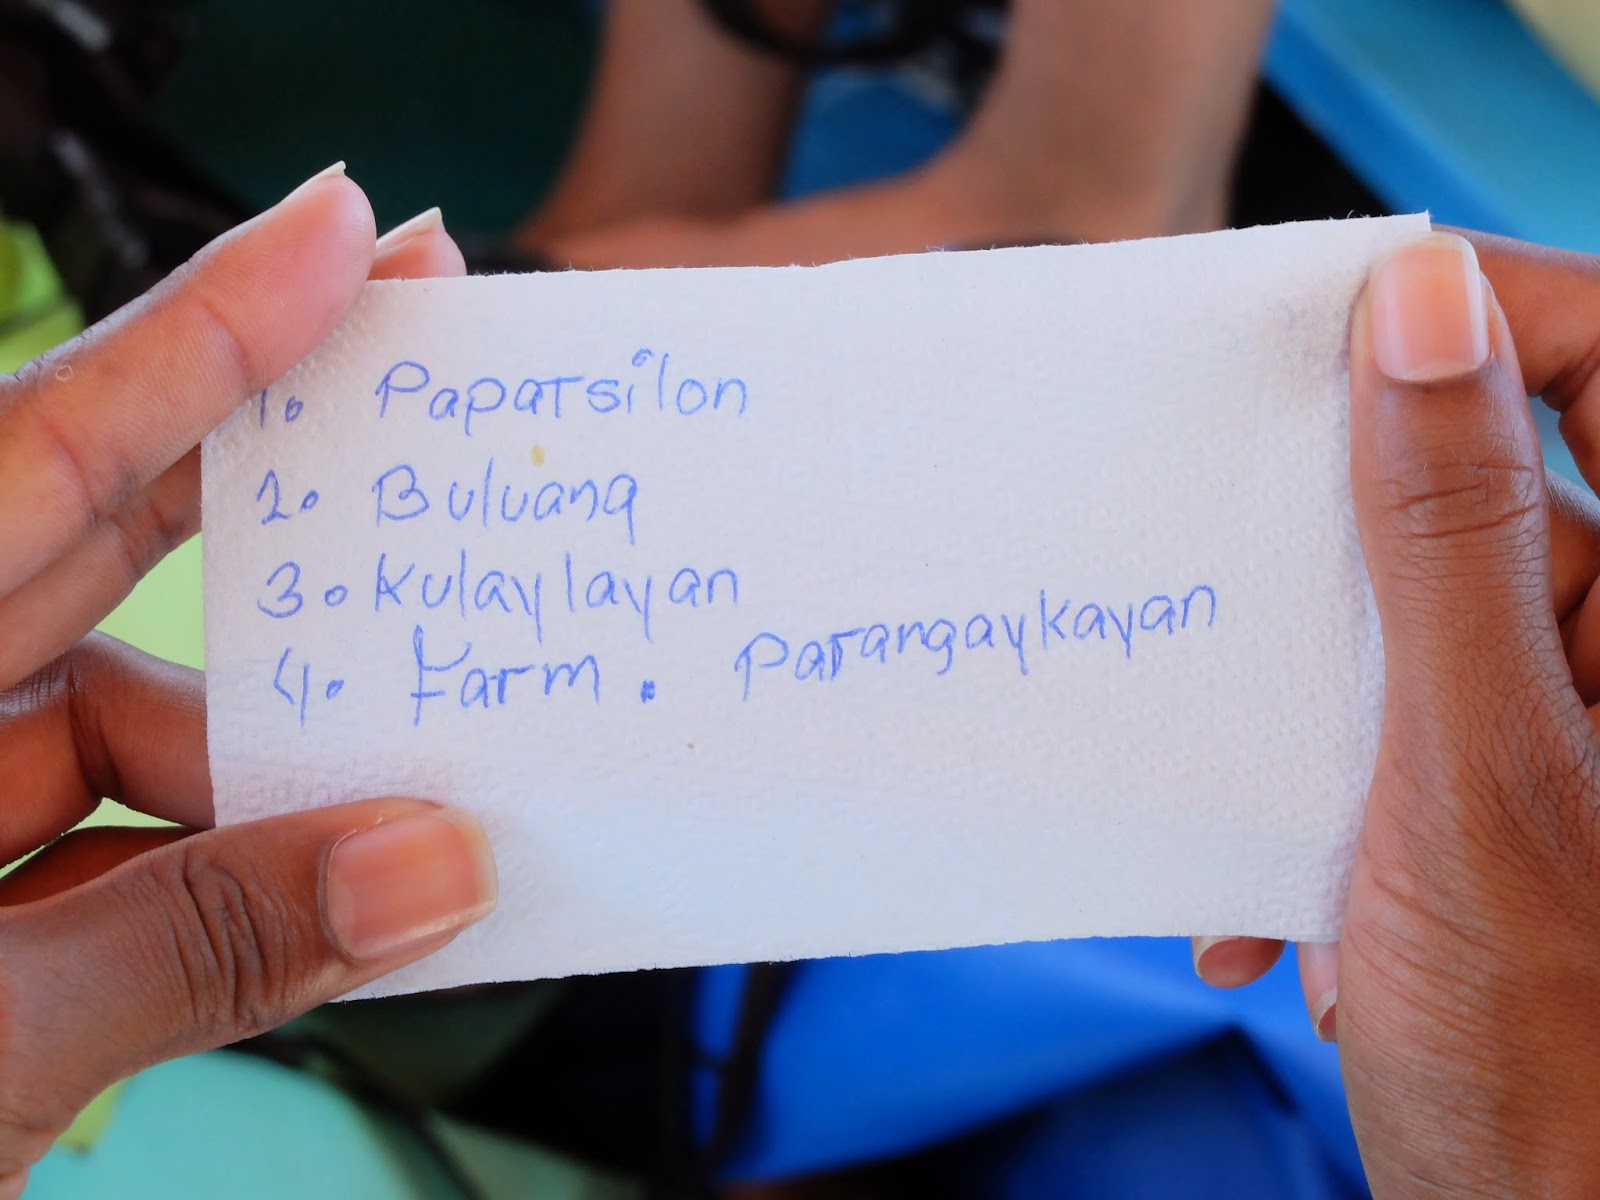 1. Paparsilon
2. Buluang
3. Kulaylayan
4. Farm. Parangaykayan